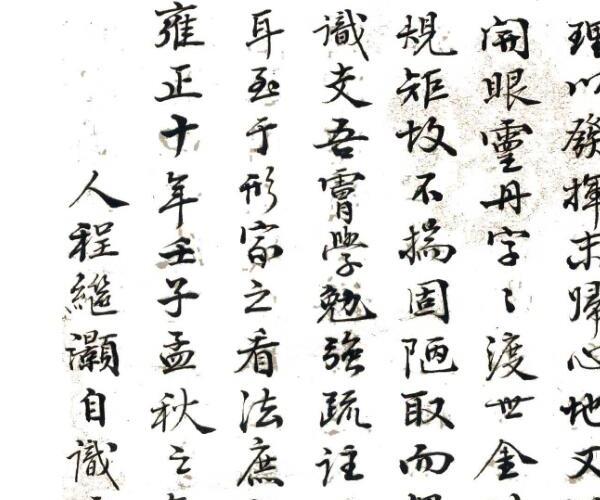 理以發揮末歸心地又
開眼靈丹字〻渡世金
規矩故不揣固陋取而
識支吾膚學勉強疏註
耳至于形家之看法庶
雍正十年壬子孟秋之
人程繼灝自識